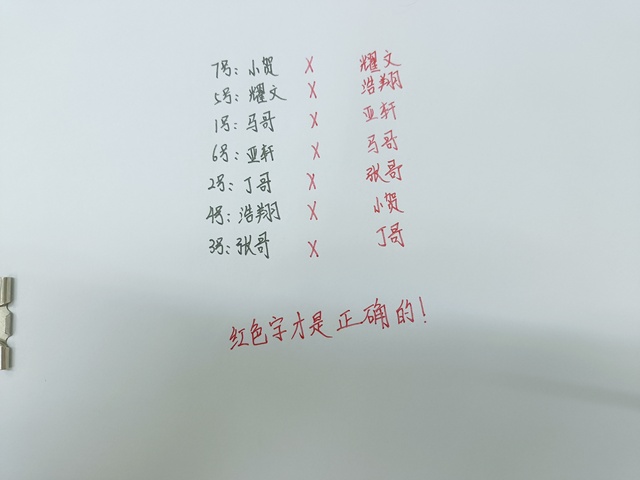 7号：小贺 X 耀文
5号：耀文 X 浩翔
1号：马哥 X 亚轩
6号：亚轩 X 马哥
2号：丁哥 X 张哥
4号：浩翔 X 小贺
3号：张哥 X 丁哥
红色字才是正确的！